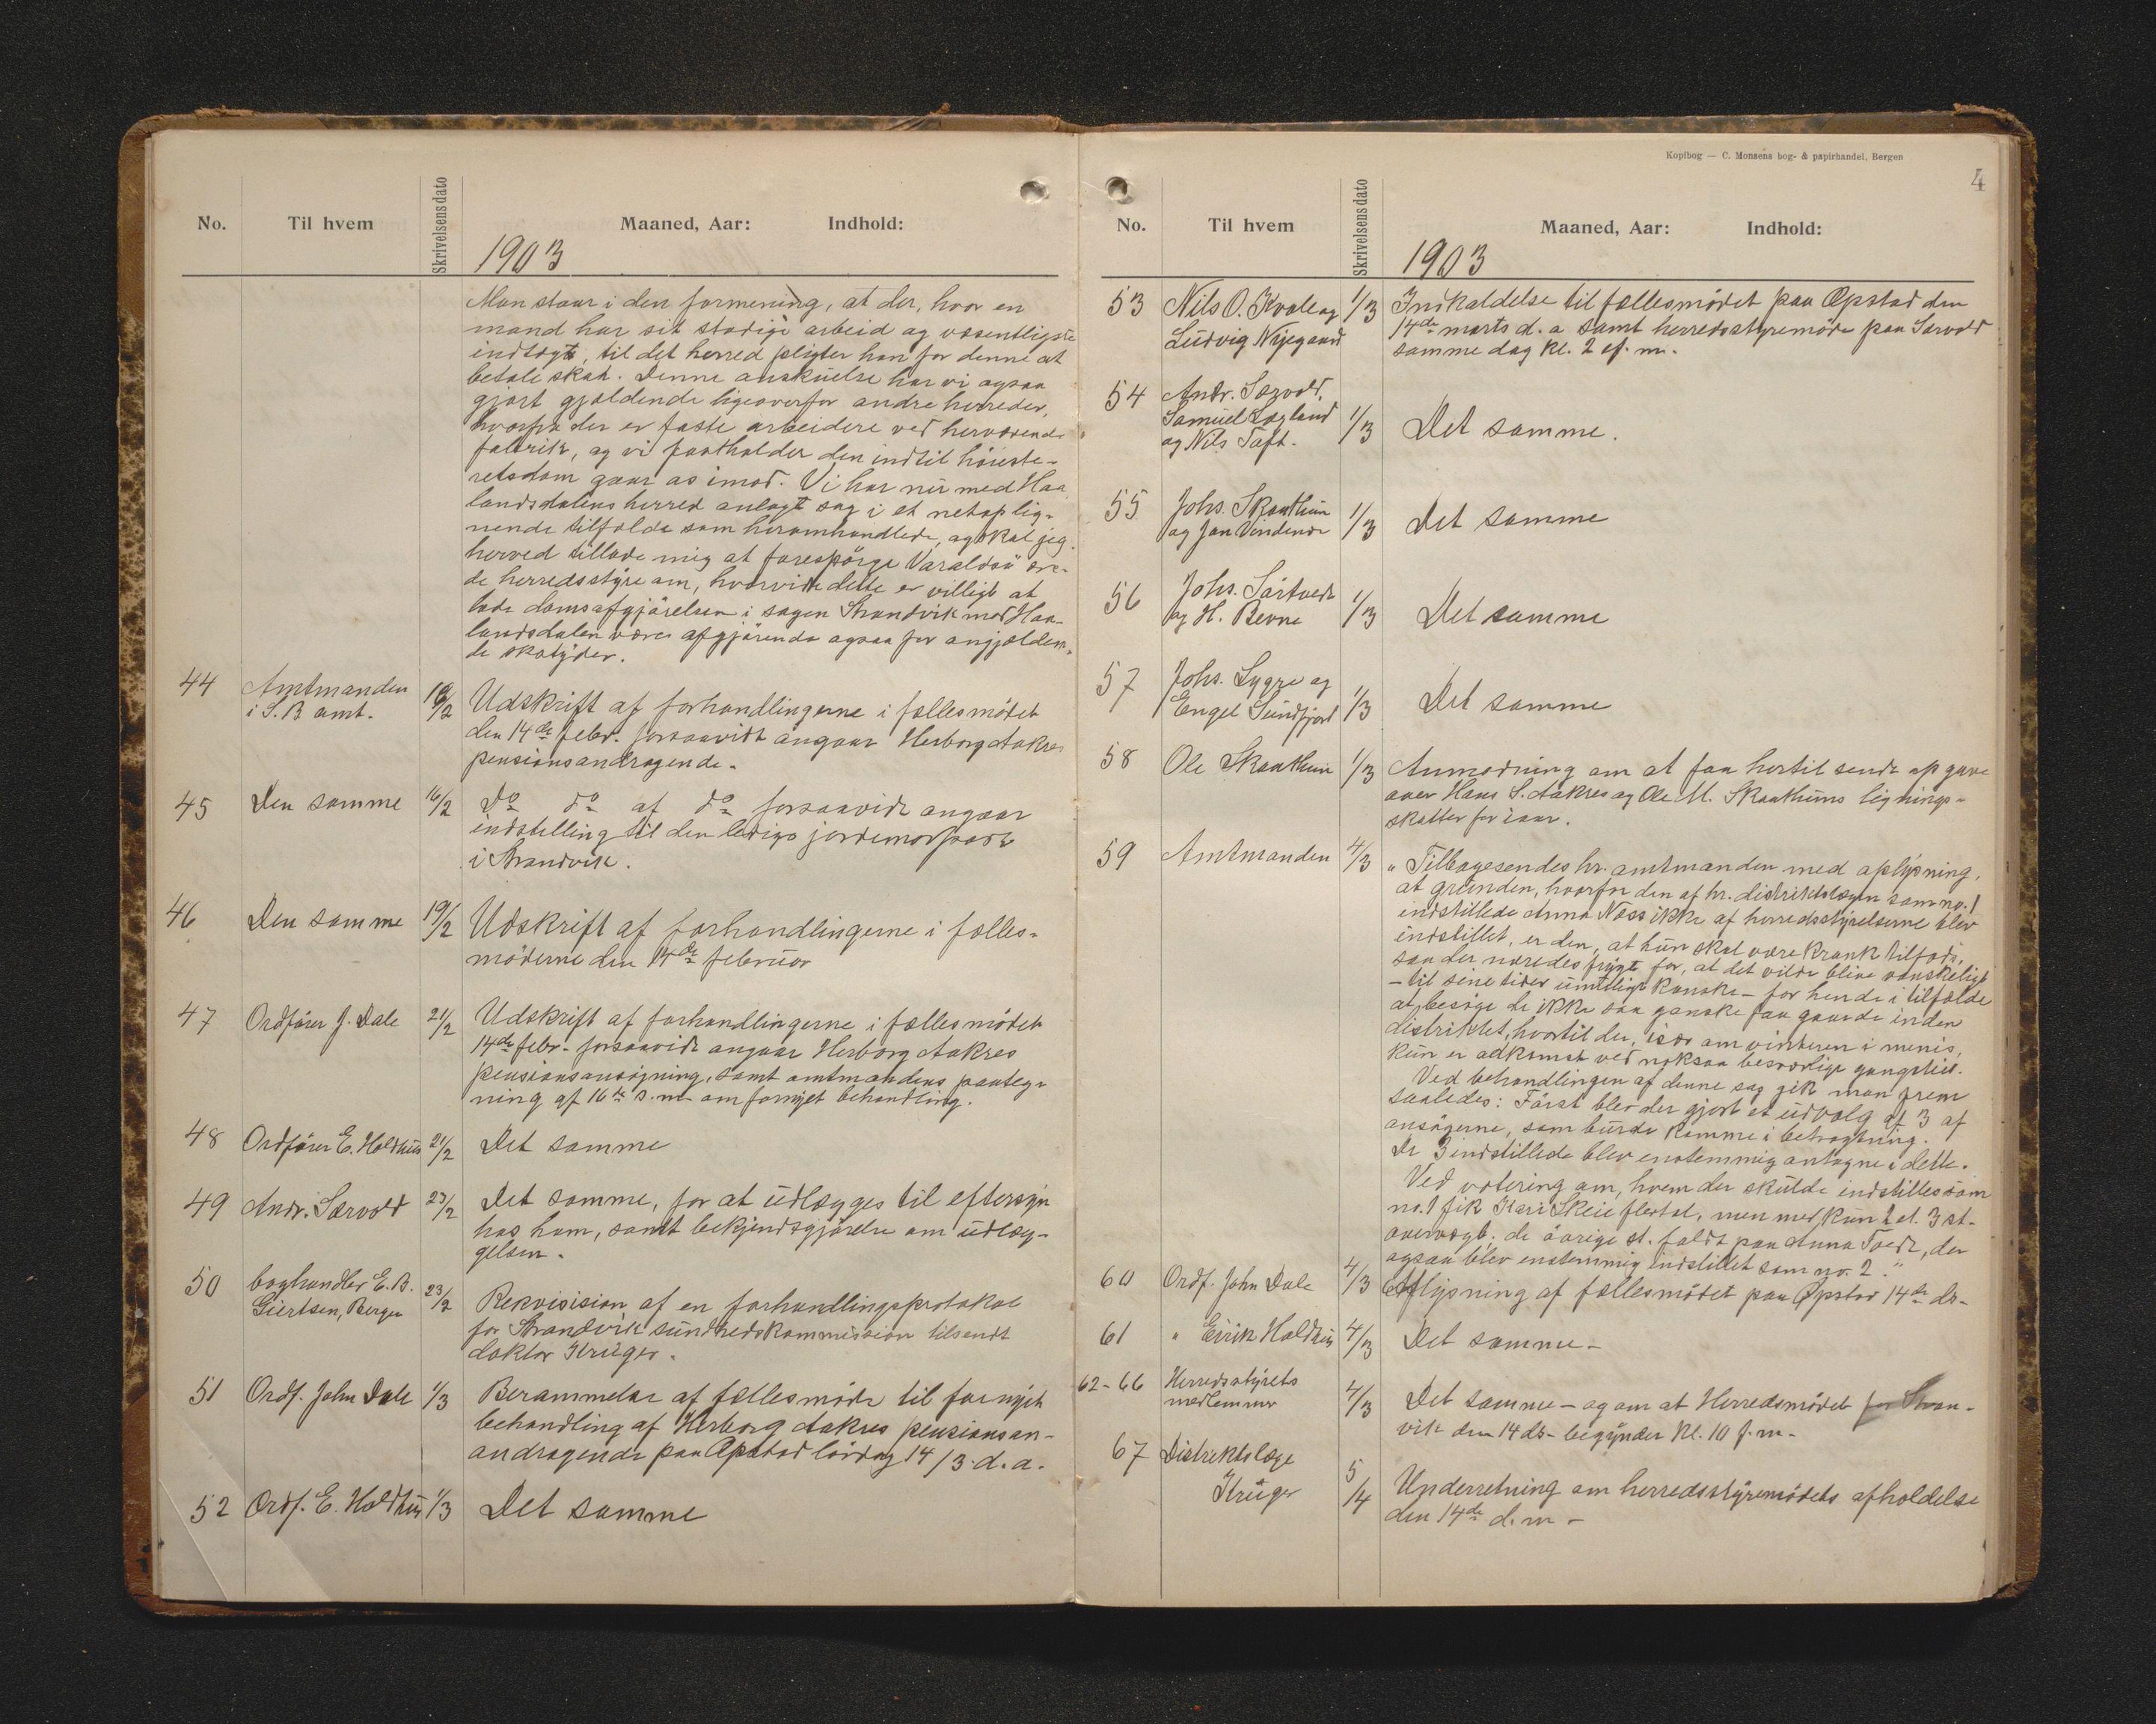 No. Til hvem Skrivelsensdato Maaned, Aar: Indhold:
1903
Man staar i den formening, at der, hvor en
mand har sit stadige arbeid og væsentligste
indtægt, til det herred pligter han for denne at
betale skat. Denne anskuelse har vi ogsaa
gjort gjældende ligeoverfor andre herreder,
hvorfra der er faste arbeidere ved herværende
fabrik, og vi fastholder den indtil höieste-
retsdom gaar os imod. Vi har nu med Haa
landsdalens herred anlagt sag i et netop lig-
nende tilfælde som heromhandlede, og skal jeg
herved tillade mig at forespörge Varaldsö ære-
de herredsstyre om, hvorvidt dette er villigt at
lade domsafgjörelsen i sagen Strandvik mod Haa-
landsdalen være afgjörende ogsaa for angjælden-
de skatyder.
44 Amtmanden i S. B amt. 16/2 Udskrift af forhandlingerne i fællesmödet
den 14de febr. forsaavidt angaar Herborg Aakres
pensionsandragende.
45 Den samme 16/2 Do do af do forsaavidt angaar
indstilling til den ledige jordemorpost
i Strandvik.
46 Den samme 19/2 Udskrift af forhandlingerne i fælles-
möderne den 14de februar
47 Ordförer J. Dale 21/2 Udskrift af forhandlingerne i fællesmödet
14de febr. forsaavidt angaar Herborg Aakres
pensionsansögning, samt amtmandens paateg-
ning af 16de s.m. om fornyet behandling.
48 Ordförer E. Holdhus 21/2 Det samme
49 Andr. Særvold 23/2 Det samme, for at udlægges til eftersyn
hos ham, samt bekjendtgjörelse om udlæg-
gelsen.
50 boghandler E. B. Giertsen, Bergen 23/2 Rekvisision af en forhandlingsprotokol
for Strandvik sundhedskommission tilsendt
doktor Krüger.
51 Ordf. John Dale 1/3 Berammelse af fællesmöde til fornyet
behandling af Herborg Aakres pensionsan-
andragende paa Opstad lördag 14/3 d. a.
52 Ordf. E. Holdhus 1/3 Det samme
Kopibog — C. Monsens bog- & papirhandel, Bergen
4
No. Til hvem Skrivelsensdato Maaned, Aar: Indhold:
1903
53 Nils O. Kvale og Ludvig Nygaard 1/3 Indkaldelse til fællesmödet paa Opstad den
14de marts d. a samt herredsstyremöde paa Særvold
samme dag kl. 2 ef. m.
54 Andr. Særvold,
Samuel Løgland
og Nils Toft. 1/3 Det samme.
55 Johs. Skaathun
og Jan Vindenes 1/3 Det samme
56 Johs. Sörtvedt
og H. Revne 1/3 Det samme
57 Johs. Lygre og
Engel Sundfjord 1/3 Det samme
58 Ole Skaathun 1/3 Anmodning om at faa hertil sendt opgave
over Hans S. Aakres og Ole M. Skaathuns lignings-
skatter for iaar.
59 Amtmanden 4/3 "Tilbagesendes hr. amtmanden med oplysning,
at grunden, hvorfor den af hr. distriktslægen som no. 1
indstillede Anna Næss ikke af herredsstyrelserne blev
indstillet, er den, at hun skal være krank tilfods,
saa der næredes frygt for, at det vilde blive vanskeligt
- til sine tider umuligt kanske - for hende i tilfælde
at besöge de ikke saa ganske faa gaarde inden
distriktet, hvortil der, især om vinteren i menis,
kun er adkomst ved noksaa besværlige gangstier.
Ved behandlingen af denne sag gik man frem
saaledes: Först blev der gjort et udvalg af 3 af
ansögerne, som burde komme i betragtning.
De 3 indstillede blev enstemmig antagne i dette.
Ved votering om, hvem der skulde indstilles som
no. 1 fik Kari Skeie flertal, men med kun 1 el. 3 st.
overvægt. de övrige st. faldt paa Anna Tvedt, der
ogsaa blev enstemmig indstillet som no. 2."
60 Ordf. John Dale 4/3 Aflysning af fællesmödet paa Opstad 14de ds.
61 " Eirik Holdhus 4/3 Det samme -
62-66 Herredsstyrets
medlemmer 4/3 Det samme - og om at Herredsmödet for Stran-
vik den 14 ds. begynder kl. 10 f. m.
67 Distriktslæge
Krüger 5/4 Underretning om herredsstyremödets afholdelse
den 14de d. m -